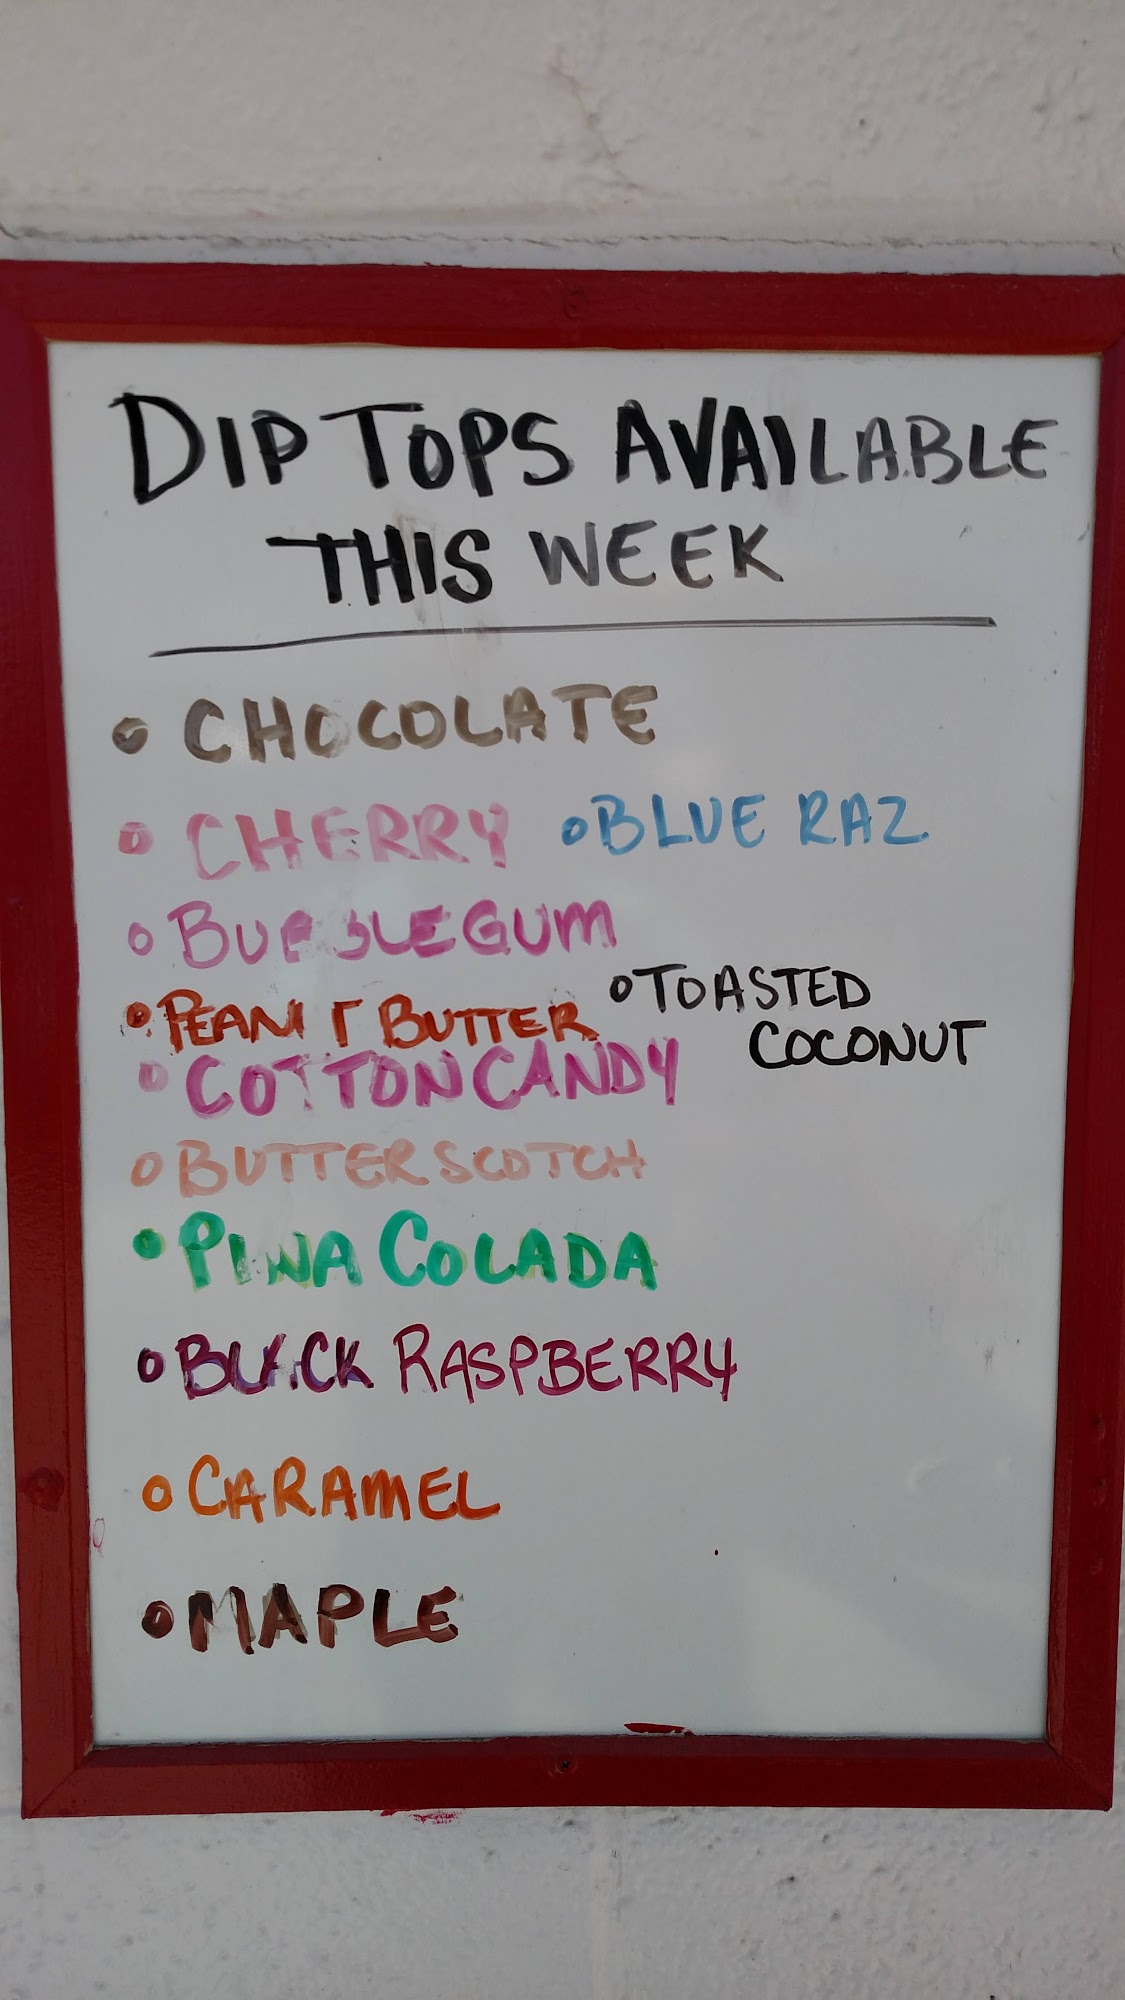 DIP TOPS AVAILABLE
THIS WEEK
CHOCOLATE
CHERRY
BLUE RAZ
BUBBLEGUM
PEANUT BUTTER
TOASTED
COCONUT
COTTON CANDY
BUTTERSCOTCH
PINA COLADA
BLACK RASPBERRY
CARAMEL
MAPLE